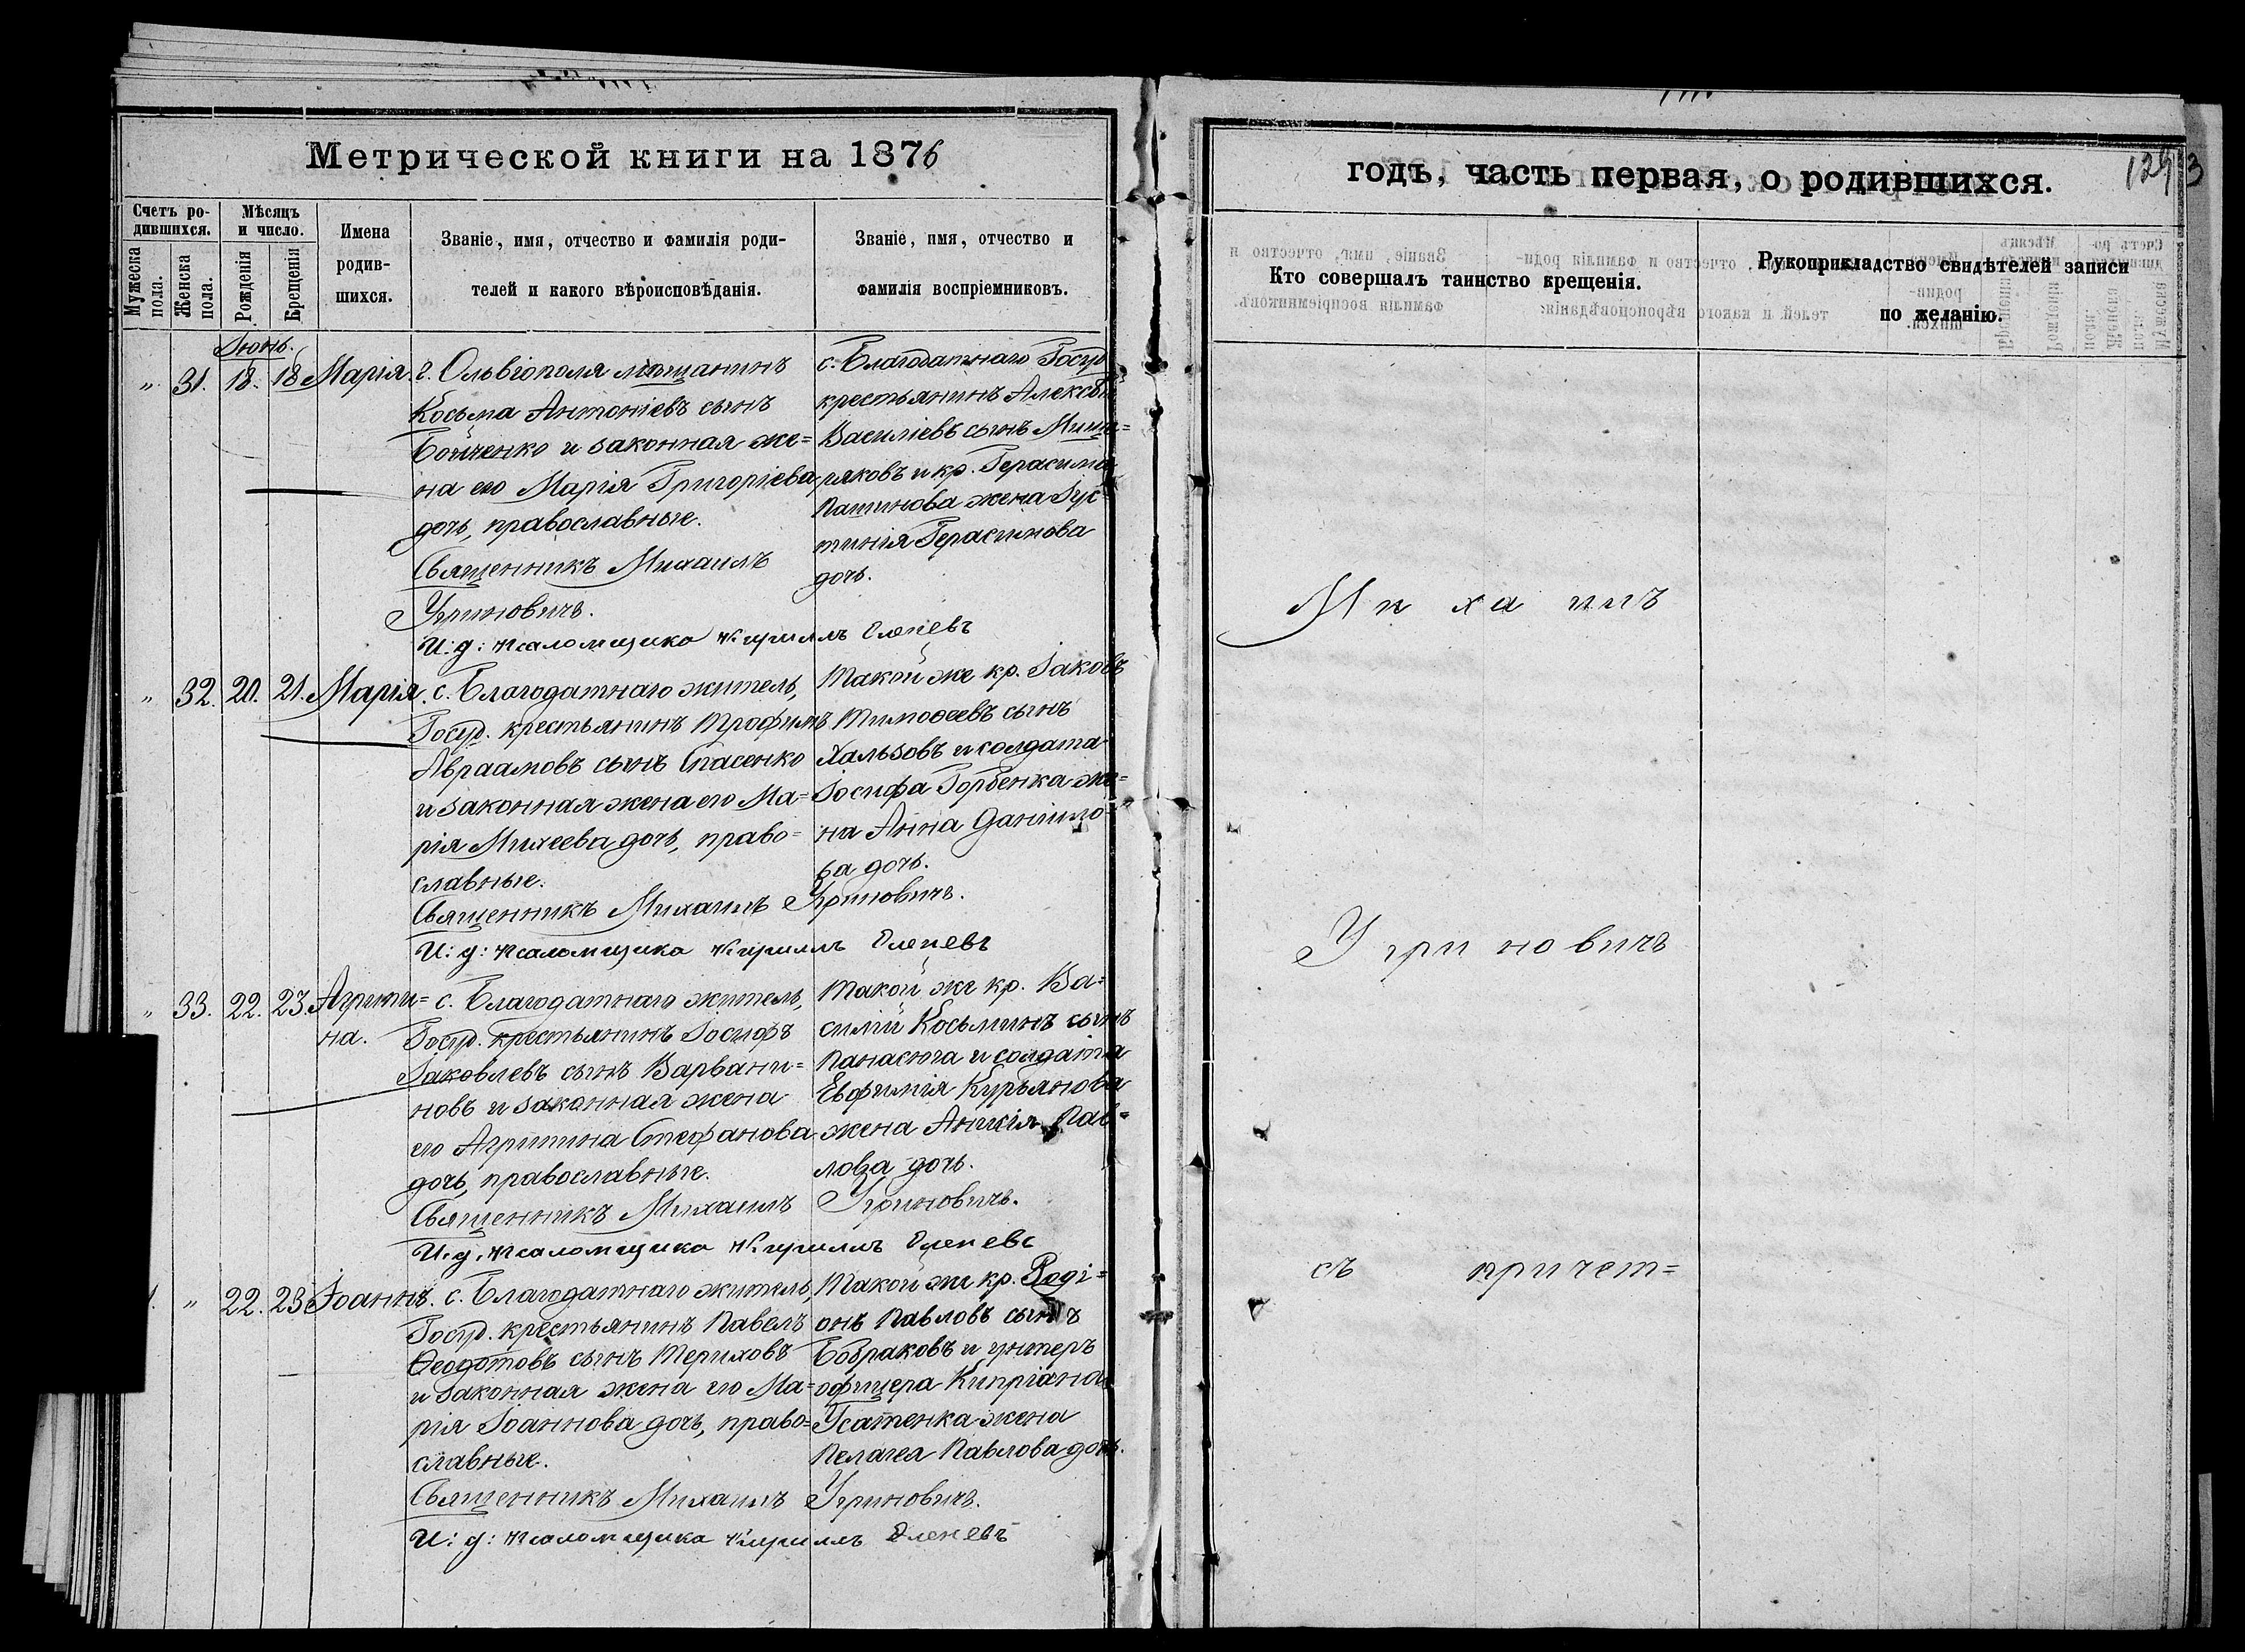 Метрической книги на 1876
годъ, часть первая, о родившихся.
Счетъ ро-
дившихся.
Мужеска пола.
Женска пола.
Мѣсяцъ
и число.
Рожденія
Крещенія
Имена
родив-
шихся.
Званіе, имя, отчество и фамилія роди-
телей и какого вѣроисповѣданія.
Званіе, имя, отчество и
фамилія воспріемниковъ.
Кто совершалъ таинство крещенія.
Рукоприкладство свидѣтелей записи
по желанію.
Іюнь.
" 31. 18. 18 Марія.
г. Ольвіополя мѣщанинъ
Косьма Антоніевъ сынъ
Бойченко и законная же=
на его Марія Григоріева
дочь, православные.
с. Благодатнаго Госуд
крестьянинъ Алексѣй
Василіевъ сынъ Мище=
ряковъ и кр. Герасима
Пашинова жена Іус
тинія Герасимова
дочь.
Священникъ Михаилъ
Угриновичъ.
И: д: псаломщика Кириллъ Оленевъ
" 32. 20. 21. Марія.
с. Благодатнаго житель,
Госуд. крестьянинъ Трофимъ
Авраамовъ сынъ Спасенко
и законная жена его Ма=
рія Михеева дочь, право=
славные.
Такой же кр. Іаковъ
Тимоѳеевъ сынъ
Хользовъ и солдата
Іосифа Горбенка же=
на Анна Даніило=
ва дочь.
Священникъ Михаилъ Угриновичъ.
И: д: псаломщика Кириллъ Оленевъ
" 33. 22. 23. Агрипи=
на.
с. Благодатнаго житель,
Госуд. крестьянинъ Іосифъ
Іаковлевъ сынъ Варвани=
новъ и законная жена
его Агрипина Стефанова
дочь, православные.
Такой же кр. Ва=
силій Косьминъ сынъ
Панасюга и солдата
Евфимія Курьянова
жена Анисія Пав=
лова дочь.
Священникъ Михаилъ Угриновичъ.
И. д. псаломщика Кириллъ Оленевъ
" 22. 23 Іоаннъ.
с. Благодатнаго житель,
Госуд. крестьянинъ Павелъ
Ѳеодотовъ сынъ Териховъ
и законная жена его Ма=
рія Іоаннова дочь, право=
славные.
Такой же кр. Роді=
онъ Павловъ сынъ
Бобраковъ и унтеръ
офицера Кипріана
Усатенка жена
Пелагея Павлова дочь.
Священникъ Михаилъ Угриновичъ.
И: д: псаломщика Кириллъ Оленевъ
Михаилъ
Угриновичъ
съ причет=